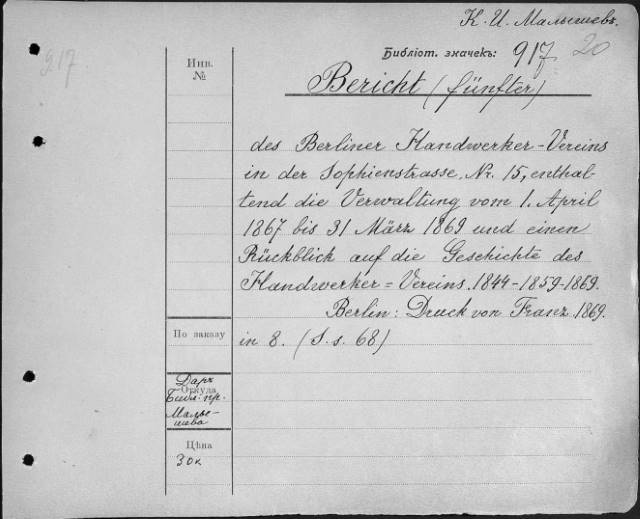 К. И. Малышевъ.
917
Библіот. значекъ: 917 20
Инв. №
Bericht (fünfter)
des Berliner Handwerker-Vereins
in der Sophienstrasse Nr. 15, enthal-
tend die Verwaltung vom 1. April
1867 bis 31 März 1869 und einen
Rückblick auf die Geschichte des
Handwerker=Vereins. 1844-1859-1869.
Berlin: Druck von Franz 1869.
По заказу
in 8. (S. s. 68)
Даръ
Откуда
Библ. пр.
Малы-
шева
Цѣна
30 к